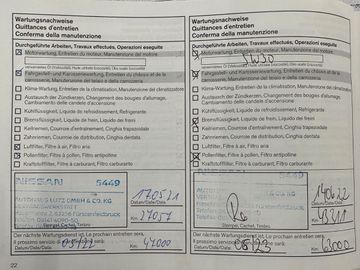 Wartungsnachweise
Quittances d'entretien
Conferma della manutenzione
Durchgeführte Arbeiten, Travaux effectués, Operazioni eseguite
Motorwartung, Entretien du moteur, Manutenzione del motore
Fahrgestell- und Karosseriewartung, Entretien du châssis et de la
carrosserie, Manutenzione del telaio e della carrozzeria
Klima-Wartung, Entretien de la climatisation, Manutenzione del climatizzatore
Austausch der Zündkerzen, Changement des bougies d'allumage,
Cambiamento delle candele d'accensione
Kühlflüssigkeit, Liquide de refroidissement, Refrigerante
Bremsflüssigkeit, Liquide de frein, Liquido dei freni
Keilriemen, Courroies d'entraînement, Cinghia trapezoidale
Zahnriemen, Courroie de distribution, Cinghia dentata
Luftfilter, Filtre à air, Filtro aria
Pollenfilter, Filtre à pollen, Filtro antipolline
Kraftstofffilter, Filtre à carburant, Filtro carburante
NISSAN 5449
AUTOHAUS LUTZ GMBH & CO. KG
Stempel, Cachet, Timbro
170521
Datum/Date/Data
Km. 27057
Der nächste Wartungsdienst ist, Le prochain entretien sera,
Il prossimo servizio di
05/22
Datum/Date/Data
Km. 47000
22
Wartungsnachweise
Quittances d'entretien
Conferma della manutenzione
Durchgeführte Arbeiten, Travaux effectués, Operazioni eseguite
Motorwartung, Entretien du moteur, Manutenzione del motore
5W30
Fahrgestell- und Karosseriewartung, Entretien du châssis et de la
carrosserie, Manutenzione del telaio e della carrozzeria
Klima-Wartung, Entretien de la climatisation, Manutenzione del climatizzatore
Austausch der Zündkerzen, Changement des bougies d'allumage,
Cambiamento delle candele d'accensione
Kühlflüssigkeit, Liquide de refroidissement, Refrigerante
Bremsflüssigkeit, Liquide de frein, Liquido dei freni
Keilriemen, Courroies d'entraînement, Cinghia trapezoidale
Zahnriemen, Courroie de distribution, Cinghia dentata
Luftfilter, Filtre à air, Filtro aria
Pollenfilter, Filtre à pollen, Filtro antipolline
Kraftstofffilter, Filtre à carburant, Filtro carburante
NISSAN 5449
Stempel, Cachet, Timbro
140622
Datum/Date/Data
Km. 43211
Der nächste Wartungsdienst ist, Le prochain entretien sera,
Il prossimo servizio sarà:
06/23
Datum/Date/Data
Km. 63000